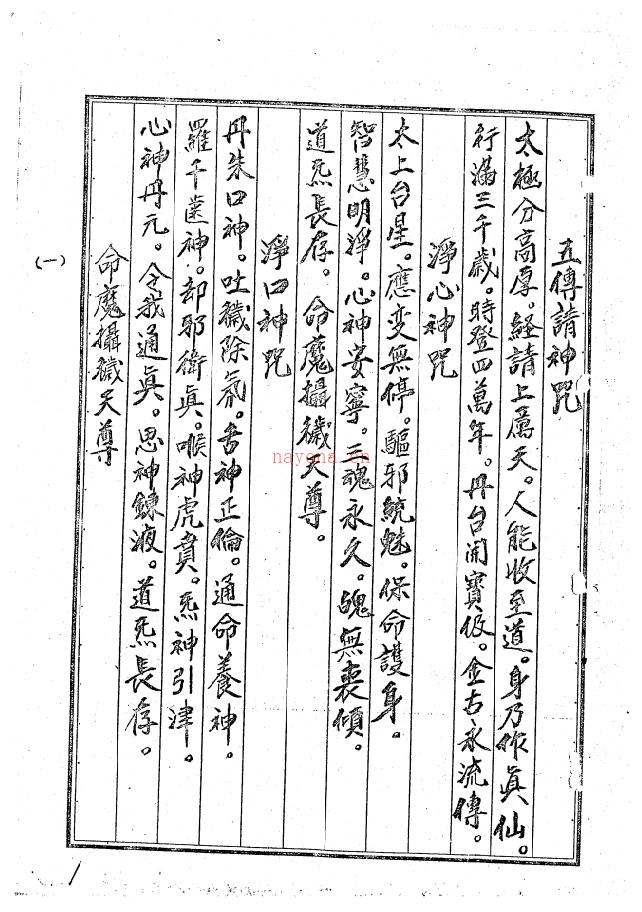 五傳請神咒
太極分高厚。経請上厲天。人能收至道。身乃作眞仙。
行滿三千歲。時登四萬年。丹台開寶伋。金古永流傳。
淨心神咒
太上台星。應变無停。驅邪䋶魅。保命護身。
智慧明淨。心神安寧。三魂永久。魄無喪傾。
道炁長存。命魔攝穢天尊。
淨口神咒
丹朱口神。吐穢除氛。舌神正倫。通命養神。
羅千齒神。却邪衛眞。喉神虎賁。炁神引津。
心神丹元。令我通眞。思神鍊液。道炁長存。
命魔攝穢天尊
(一)
1
nayona.cn